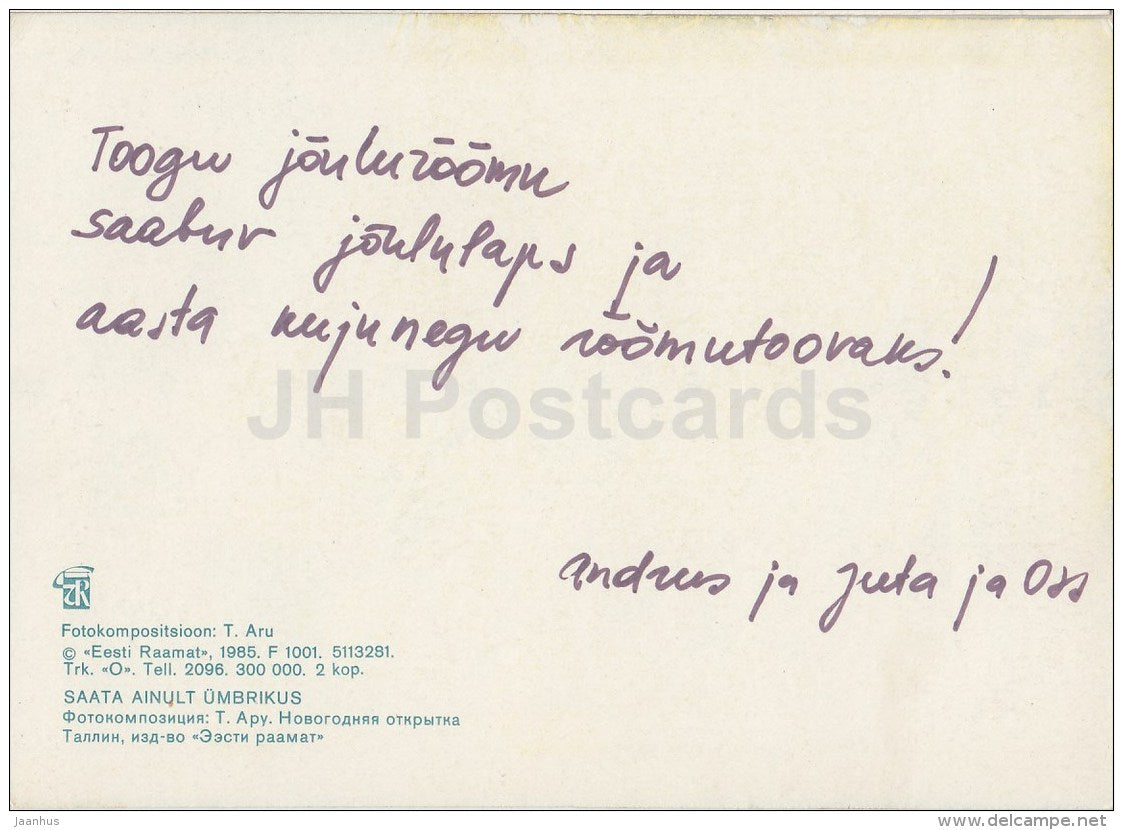 Toogu jõulurõõmu
saabuv jõululaps ja
aasta kujunegu rõõmutoovaks!
JH Postcards
Andrus ja Juta ja Oss
Fotokompositsioon: T. Aru
© «Eesti Raamat», 1985. F 1001. 5113281.
Trk. «O». Tell. 2096. 300 000. 2 kop.
SAATA AINULT ÜMBRIKUS
Фотокомпозиция: Т. Ару. Новогодняя открытка
Таллин, изд-во «Ээсти раамат»
Jaanhus
www.delcampe.net